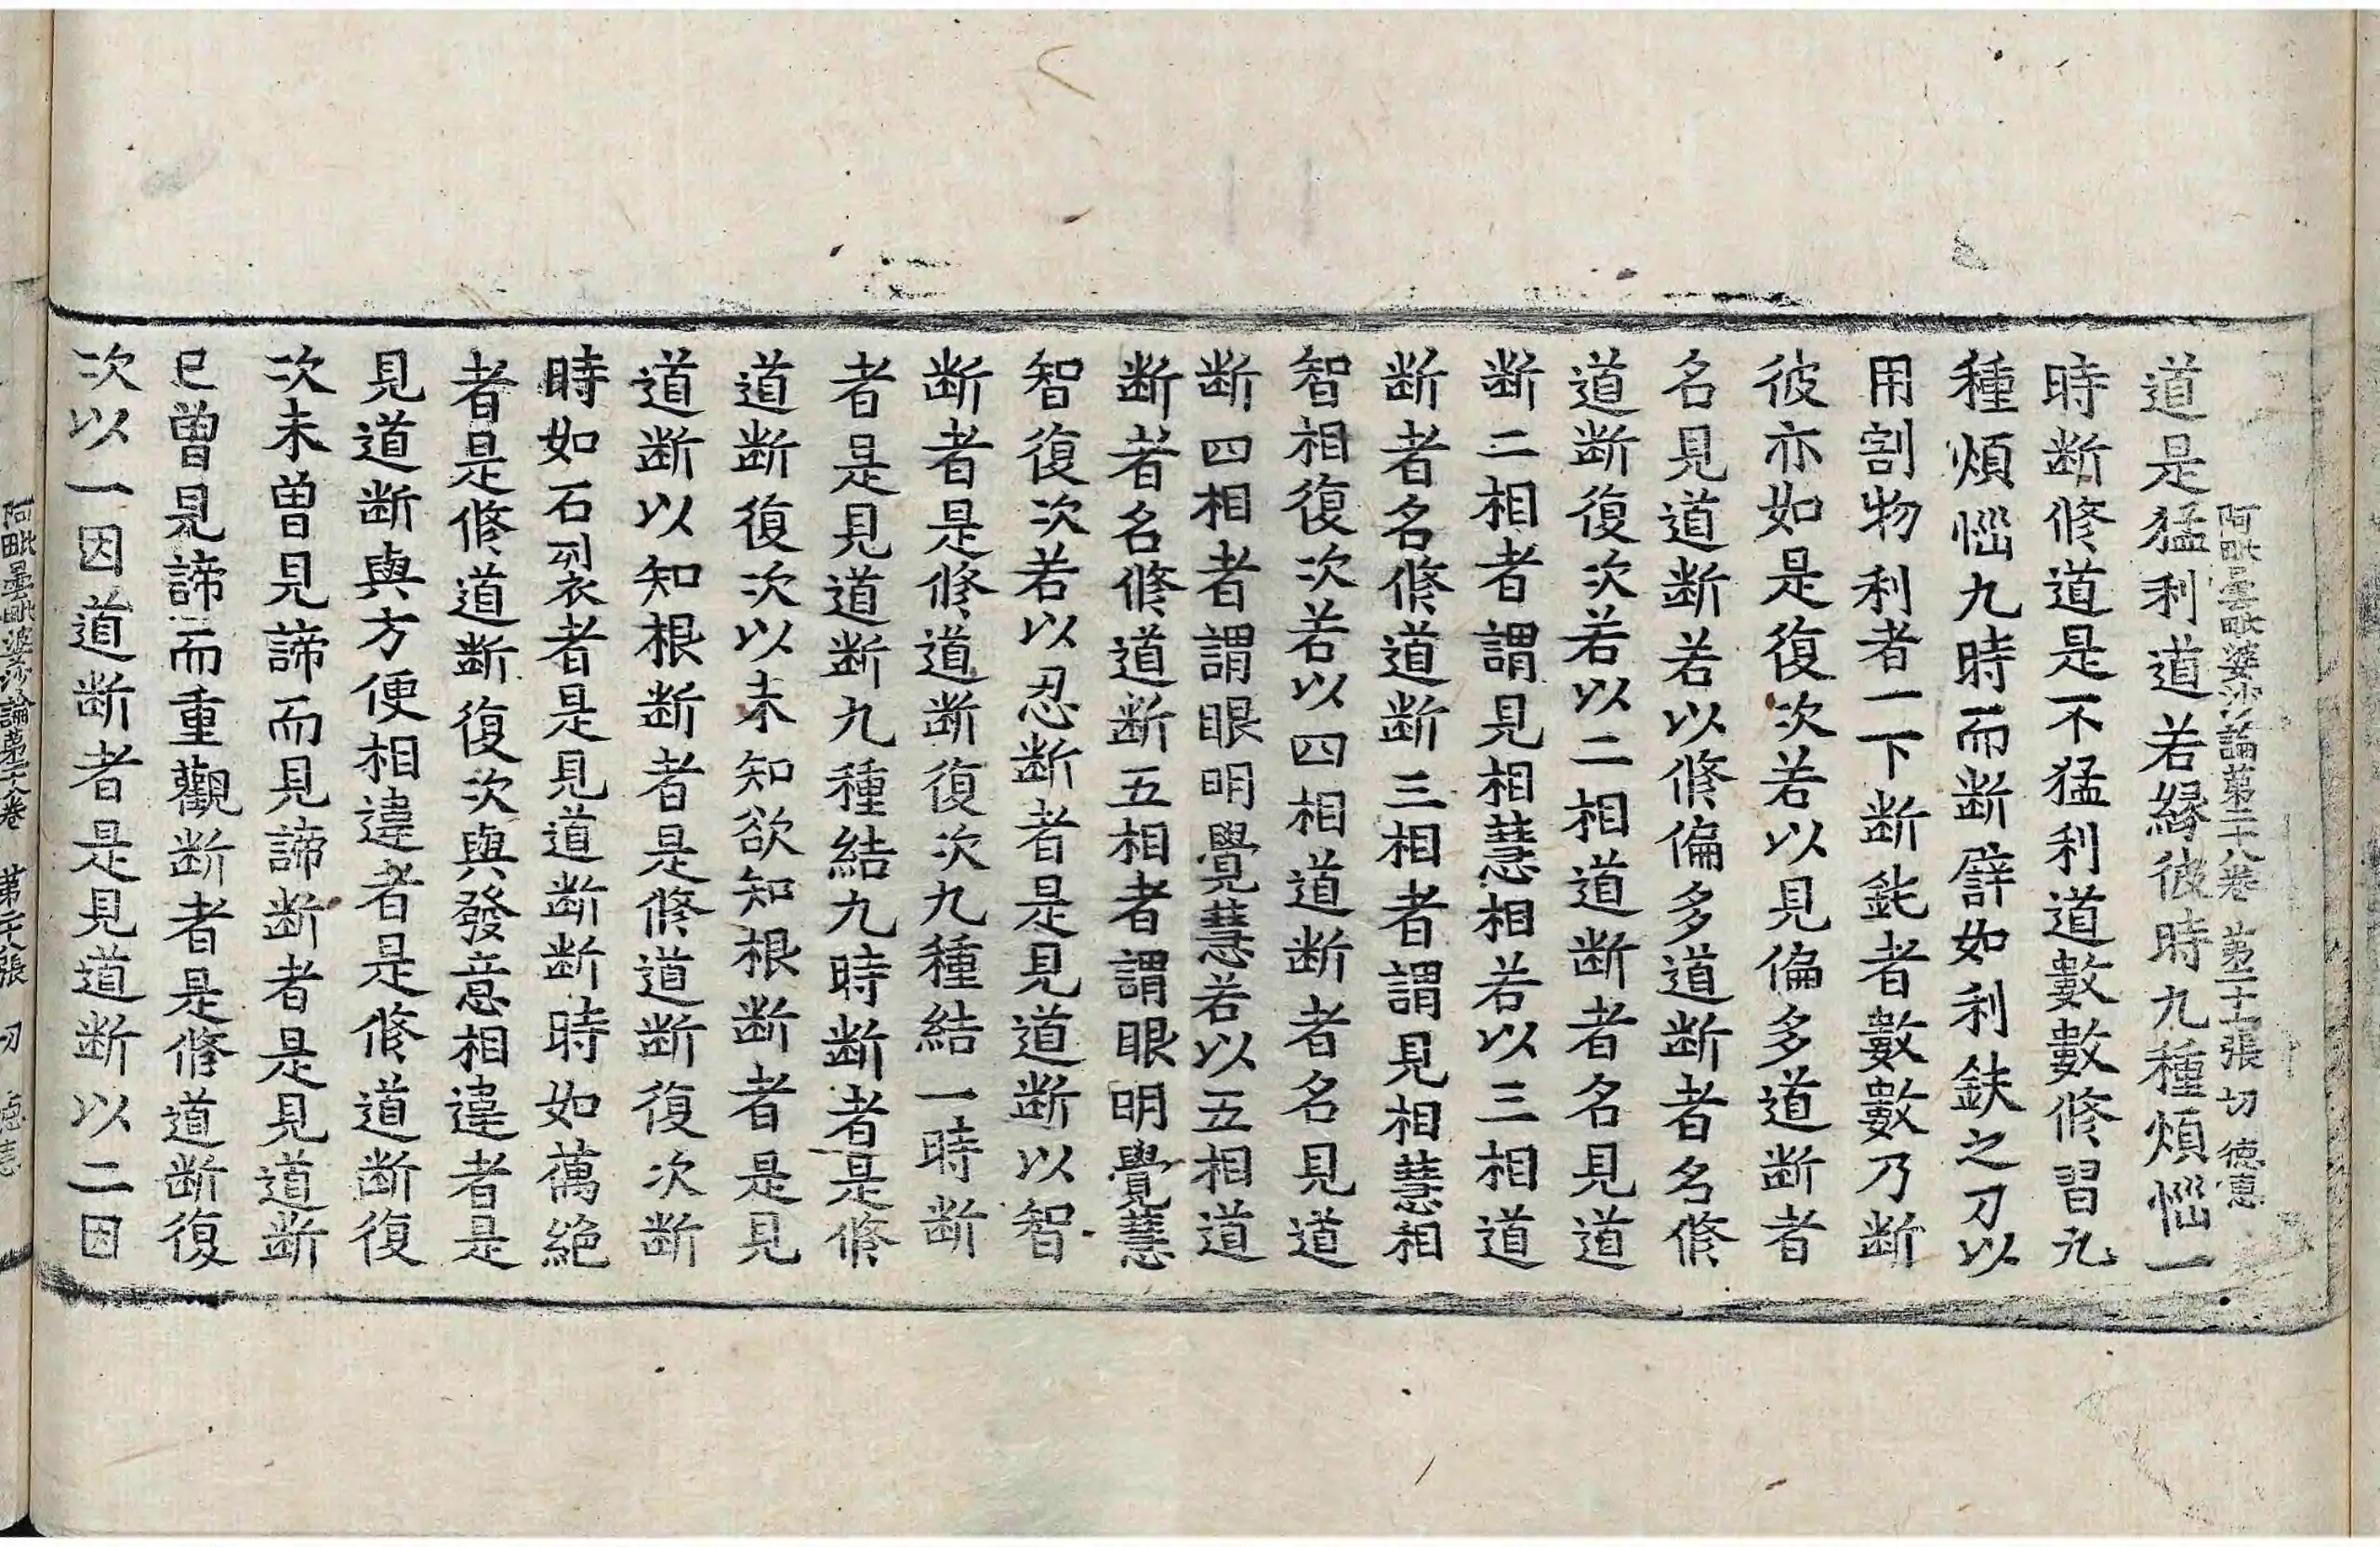 阿毗曇毗婆沙論第二十八卷 第二十七張 切 德惠
道是猛利道若緣彼時九種煩惱一
時断修道是不猛利道數數修習九
種煩惱九時而断譬如利鈇之刀以
用割物利者一下断鈍者數數乃断
彼亦如是復次若以見偏多道断者
名見道断若以修偏多道断者名修
道断復次若以二相道断者名見道
断二相者謂見相慧相若以三相道
断者名修道断三相者謂見相慧相
智相復次若以四相道断者名見道
断四相者謂眼明覺慧若以五相道
断者名修道断五相者謂眼明覺慧
智復次若以忍断者是見道断以智
断者是修道断復次九種結一時断
者是見道断九種結九時断者是修
道断復次以未知欲知根断者是見
道断以知根断者是修道断復次断
時如石裂者是見道断断時如藕絕
者是修道断復次與發意相違者是
見道断與方便相違者是修道断復
次未曾見諦而見諦断者是見道断
已曾見諦而重觀断者是修道断復
次以一因道断者是見道断以二因
阿毗曇毗婆沙論第二十八卷 第二十八張 切